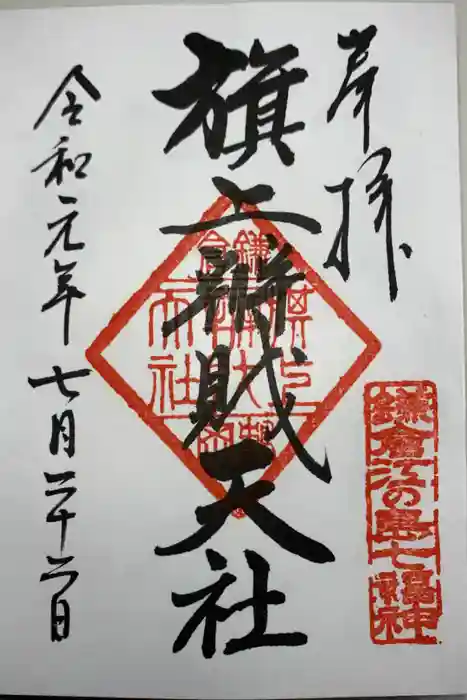 奉拝
旗上辨財天社
令和元年七月二十二日
鎌倉江の島七福神